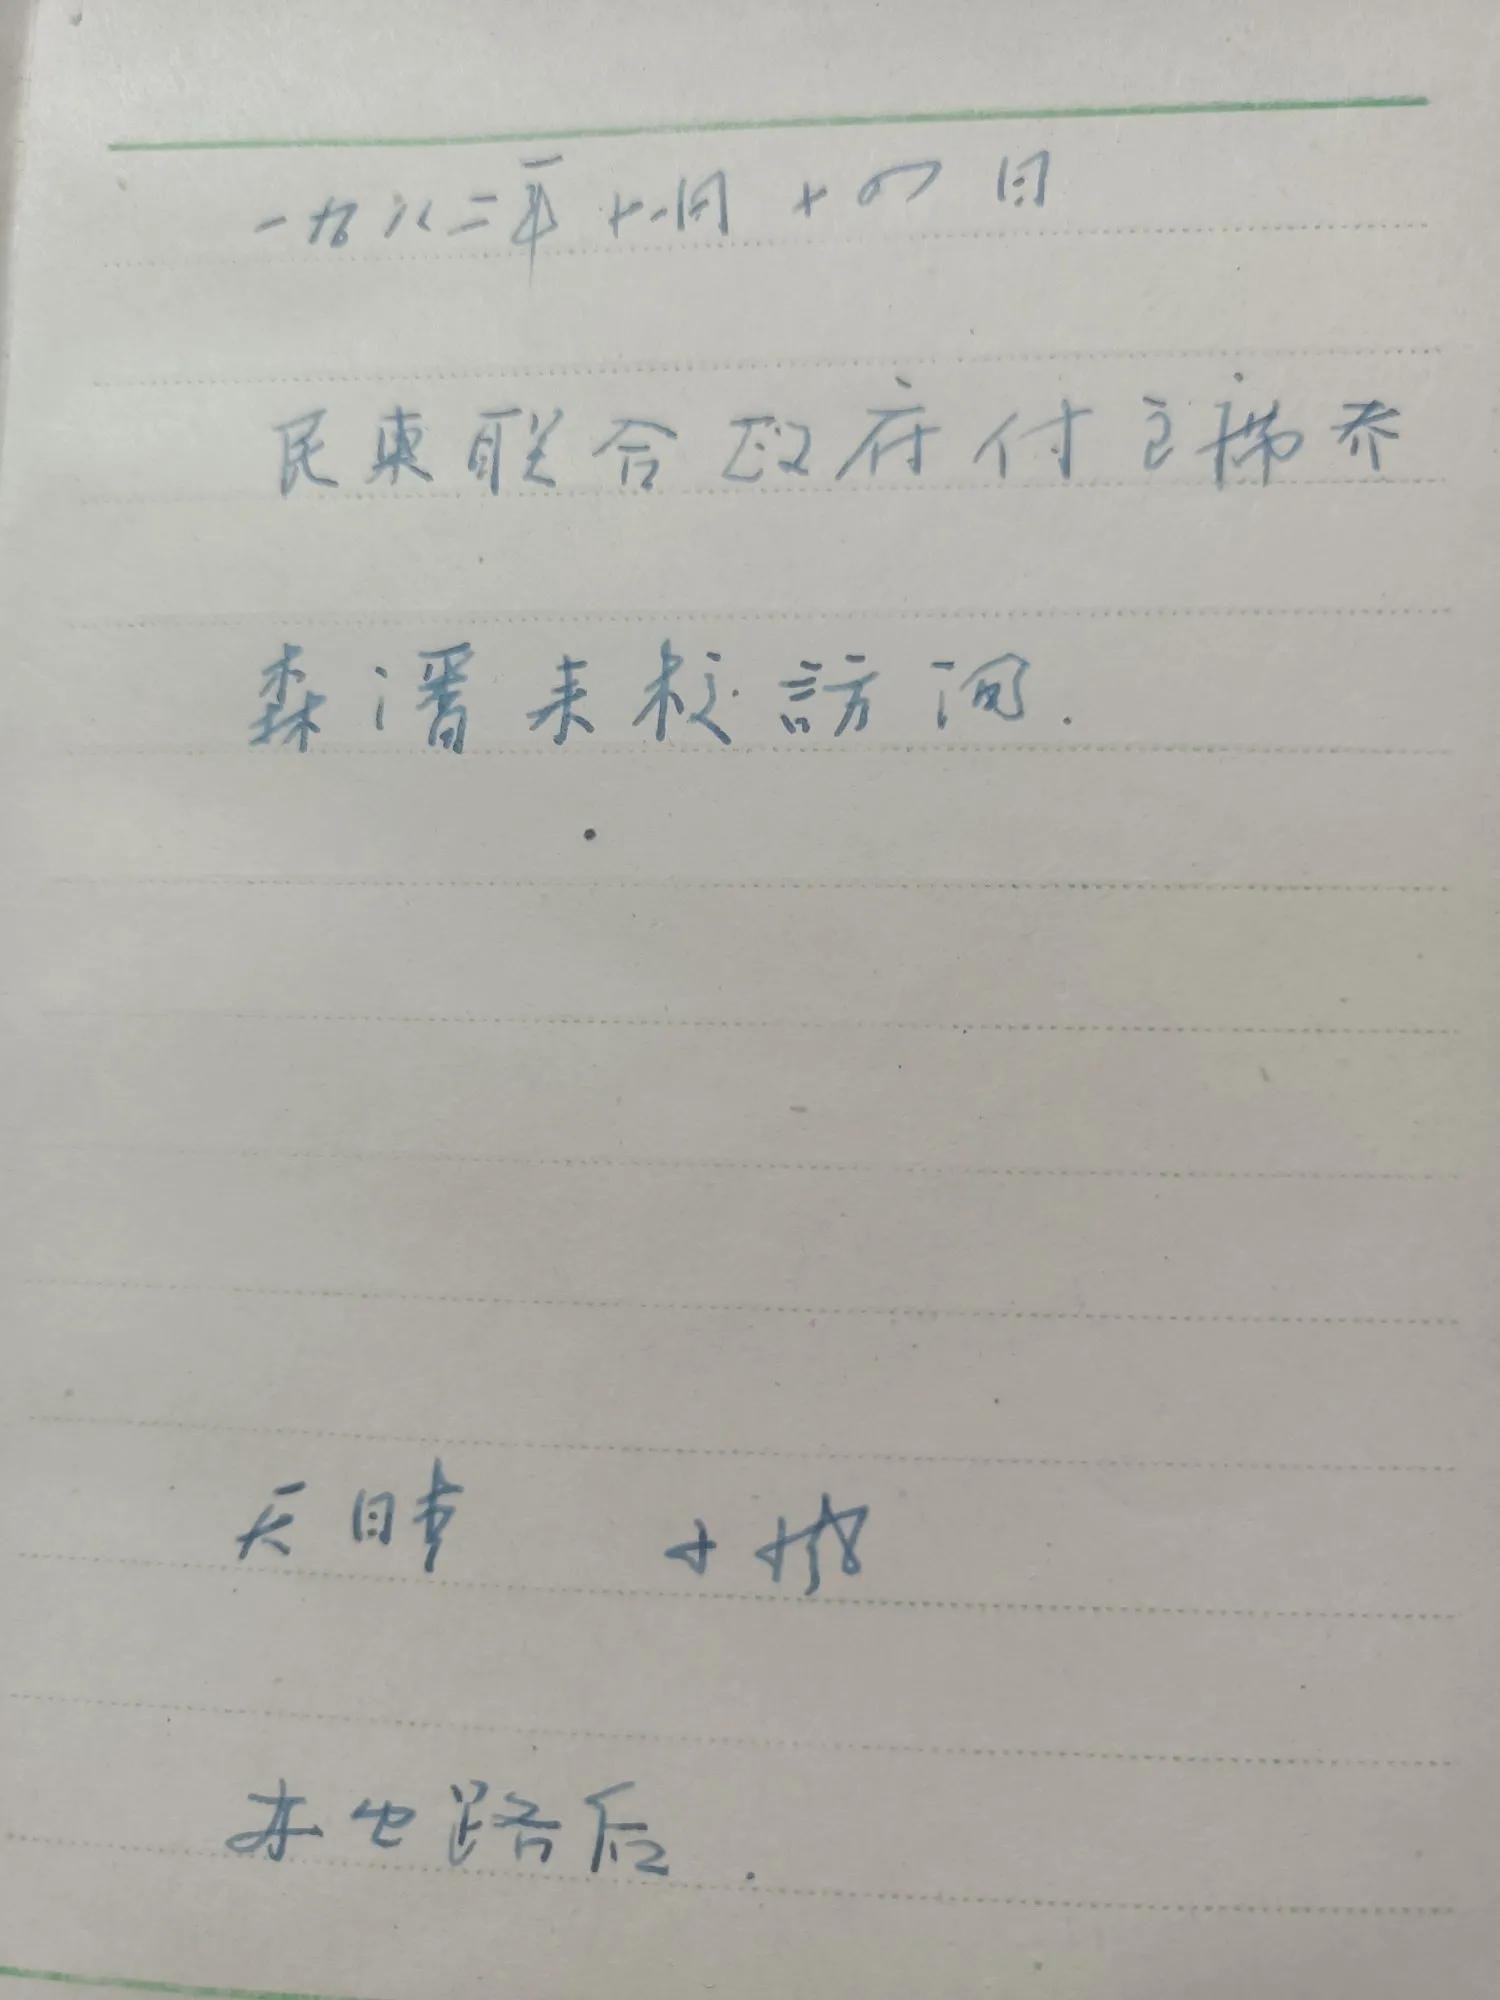 一九八二年十一月十四日
民柬联合政府付主席乔
森潘来校訪问.
天晴
路后.